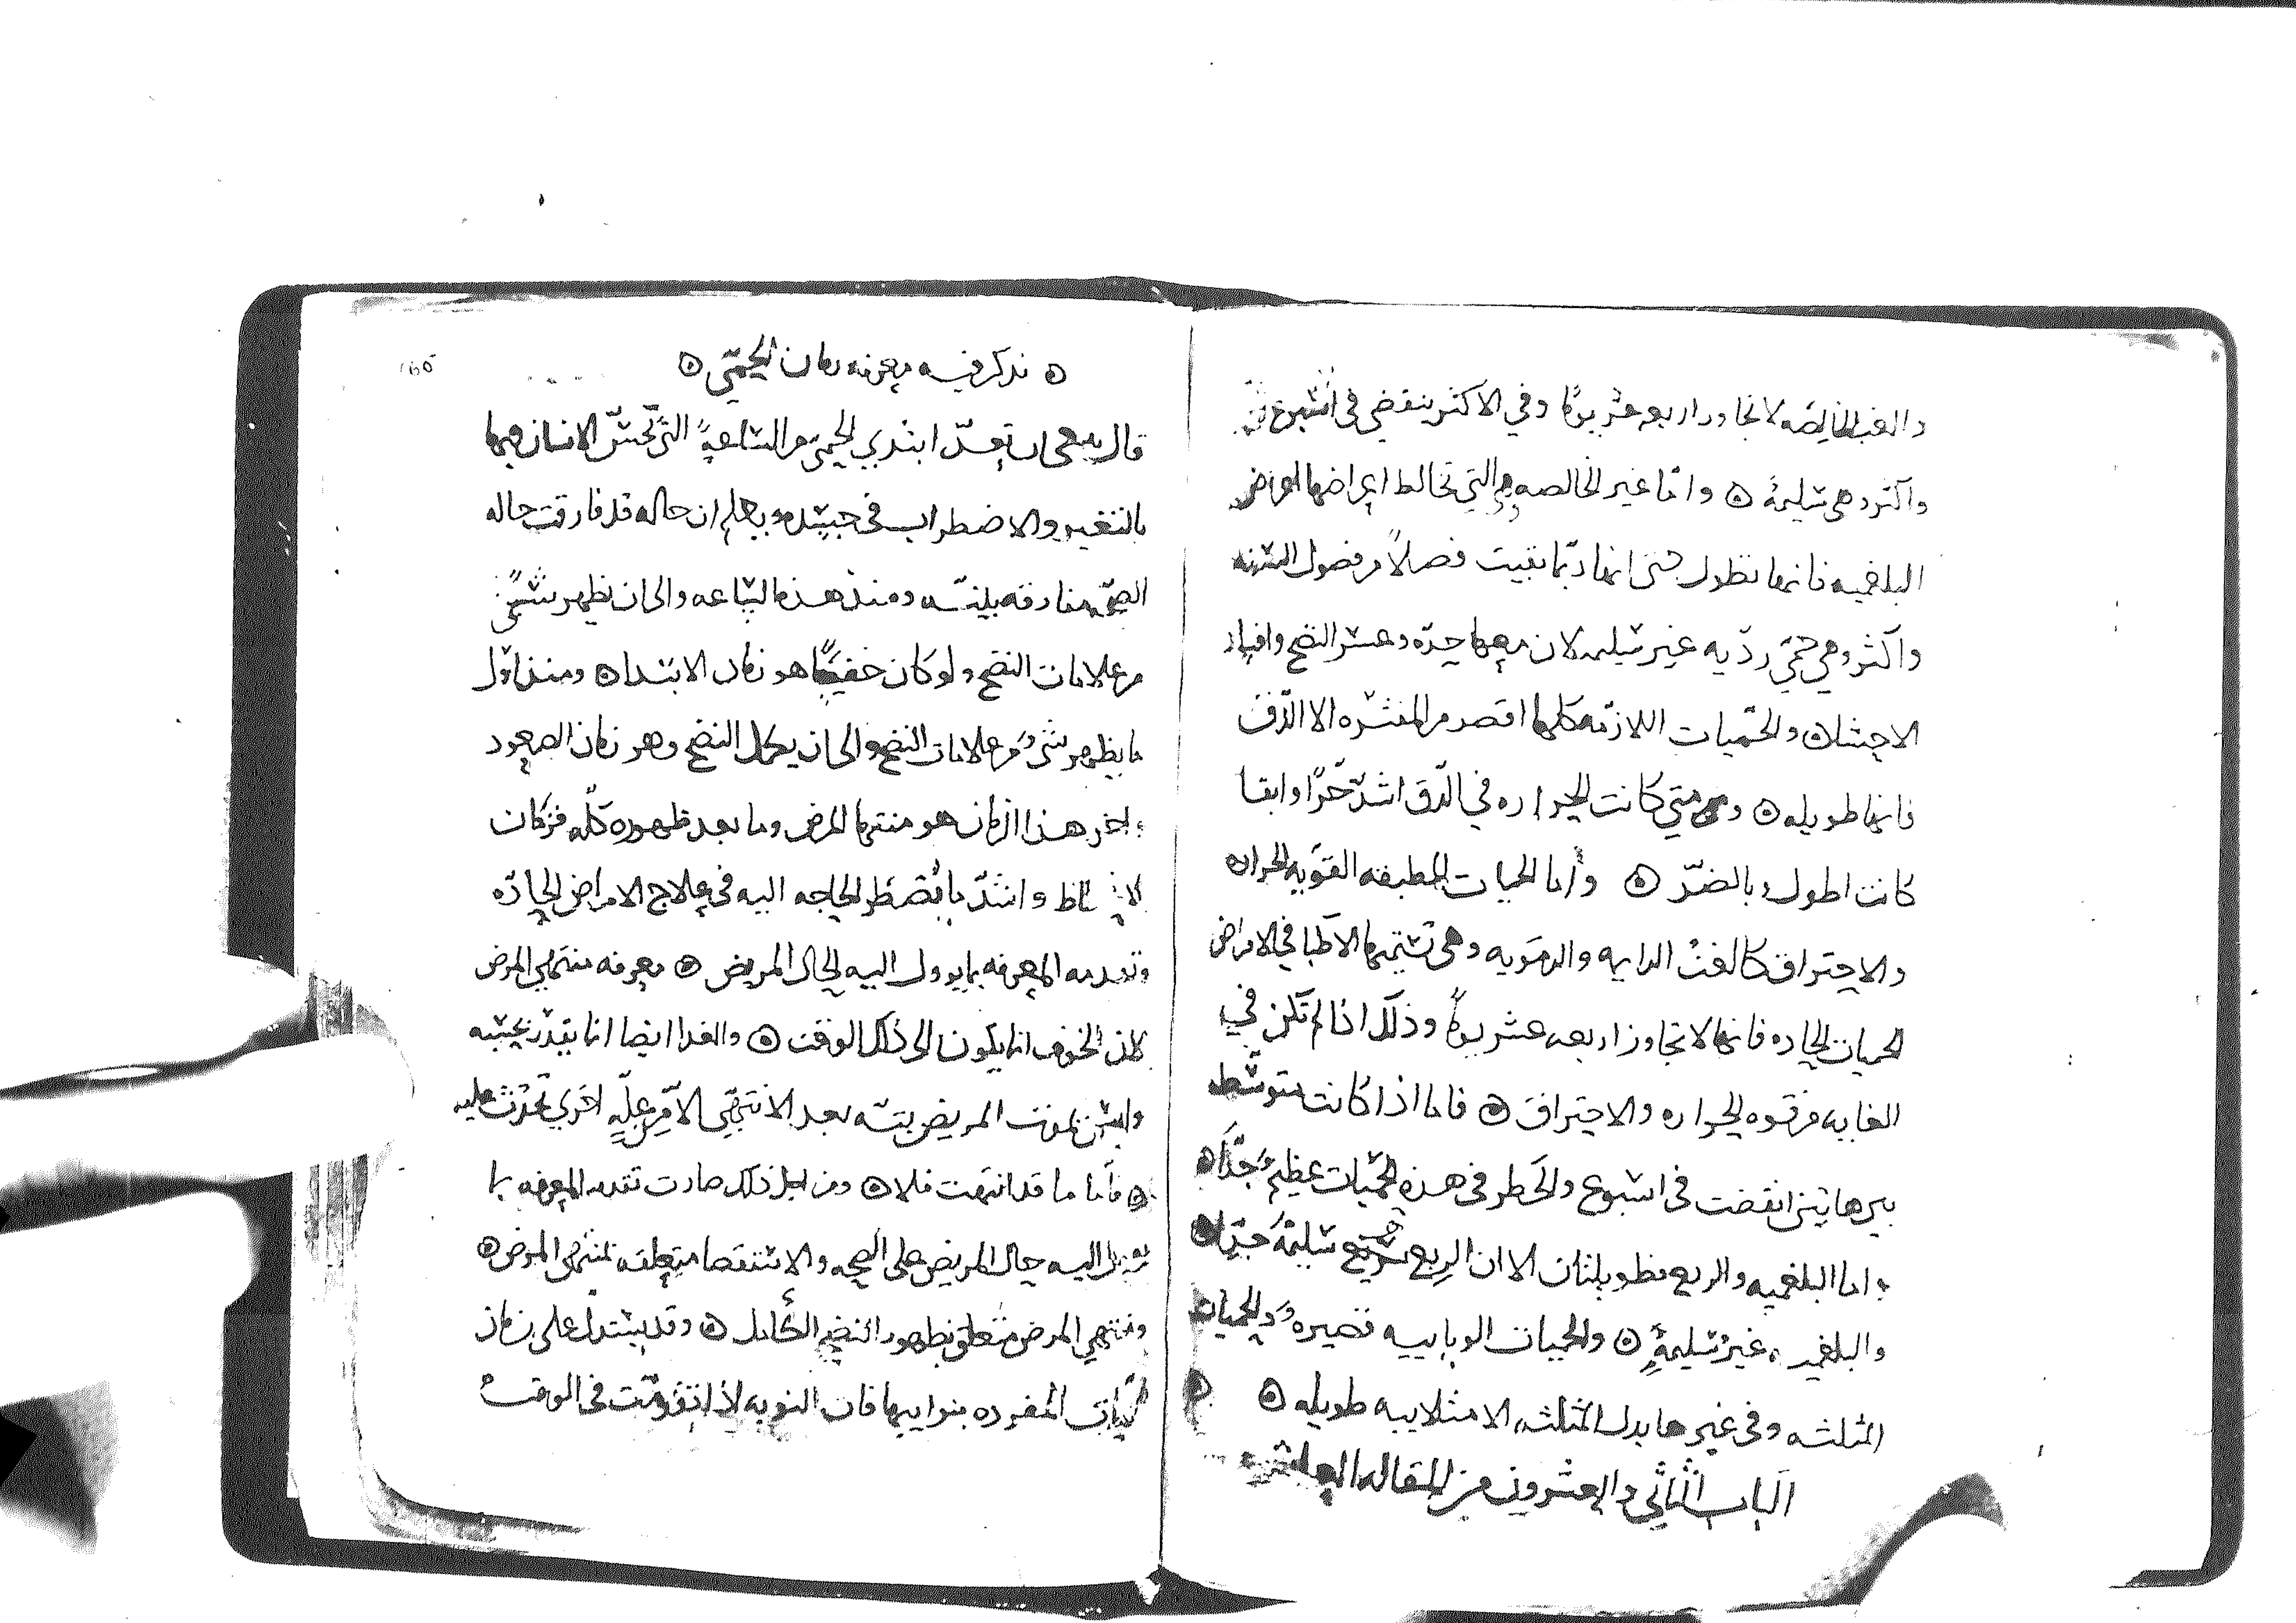 والغب الخالصه لا تجاوز اربعه عشر يومًا وفي الاكثر ينقضي في اسبوع
واكثر وهي سليمة ۞ واما غير الخالصه وهي التي تخالط اعراضها اعراض
البلغميه فانها تطول حتى انها ربّما بقيت فصلاً من فصول السنه
واكثر وهي حمّي رديه غير سليمه لان معها حدّه وعسر النضج وافساد
الاحشا ۞ والحمّيات اللازمه كلها اقصر من المفتره الا الدّق
فانها طويله ۞ ومتي كانت الحراره في الدّق اشدّ حرًّا وابقا
كانت اطول وبالضدّ ۞ وأما الحميات المطبقه القويه الحراره
والاحتراق كالغب الدايمه والدمويه وهي تسميها الاطبا في الامراض
الحميات الحاده فانها لا تجاوز اربعه عشر يومًا وذلك اذا لم تكن في
الغايه من قوه الحراره والاحتراق ۞ فاما اذا كانت متوسطه
بين هاتين انقضت في اسبوع والخطر في هذه الحمّيات عظيم جدّا ۞
واما البلغميه والربع فطويلتان الا ان الربع سليمة جدّا ۞
والبلغميه غير سليمةٍ ۞ والحميات الوباييه قصيره والحميات
المثلثه وفي غيرها بدل المثلثه الامتلاييه طويله ۞
الباب الثاني والعشرون من المقاله العاشره
۞ نذكر فيه معرفه زمان الحمّي ۞
قال ينبغي ان تعدّ ابتدي الحمّي من الساعةِ التي يحسّ الانسان فيها
بالتغير والاضطراب في جسده ويعلم ان حاله قد فارقت حاله
الصحّه مفارقه بيّنه ومنذ هذه الساعه والى ان يظهر شيءٌ
من علامات النضج ولو كان خفيًّا هو زمان الابتدا ۞ ومنذ اوّل
ما يظهر شي من علامات النضج والى ان يكمل النضج وهو زمان الصعود
واخر هذا الزمان هو منتها المرض وما بعد ظهوره كلّه فزمان
الانحطاط واشدّ ما تضطر الحاجه اليه في علاج الامراض الحادّه
وتقدمه المعرفه بما يوول اليه الحال المريض ۞ معرفه منتهي المرض
لان الخوف انما يكون الى ذلك الوقت ۞ والغدا ايضا انما يقدّر بحسبه
وليس يموت المريض بتّه بعد الانتهي الا من علّهٍ اخرى تحدث عليه
۞ فأما ما قد انتهت فلا ۞ ومن اجل ذلك صارت تقدمه المعرفه بما
يوول اليه حال المريض على الصحه والاستقصا متعلقه بمنتهي المرض ۞
ومنتهي المرض متعلق بظهور النضج الكامل ۞ وقد يستدلّ على زمان
الحمّيات المفرده بنوايبها فان النوبه اذا تقدّمت في الوقت